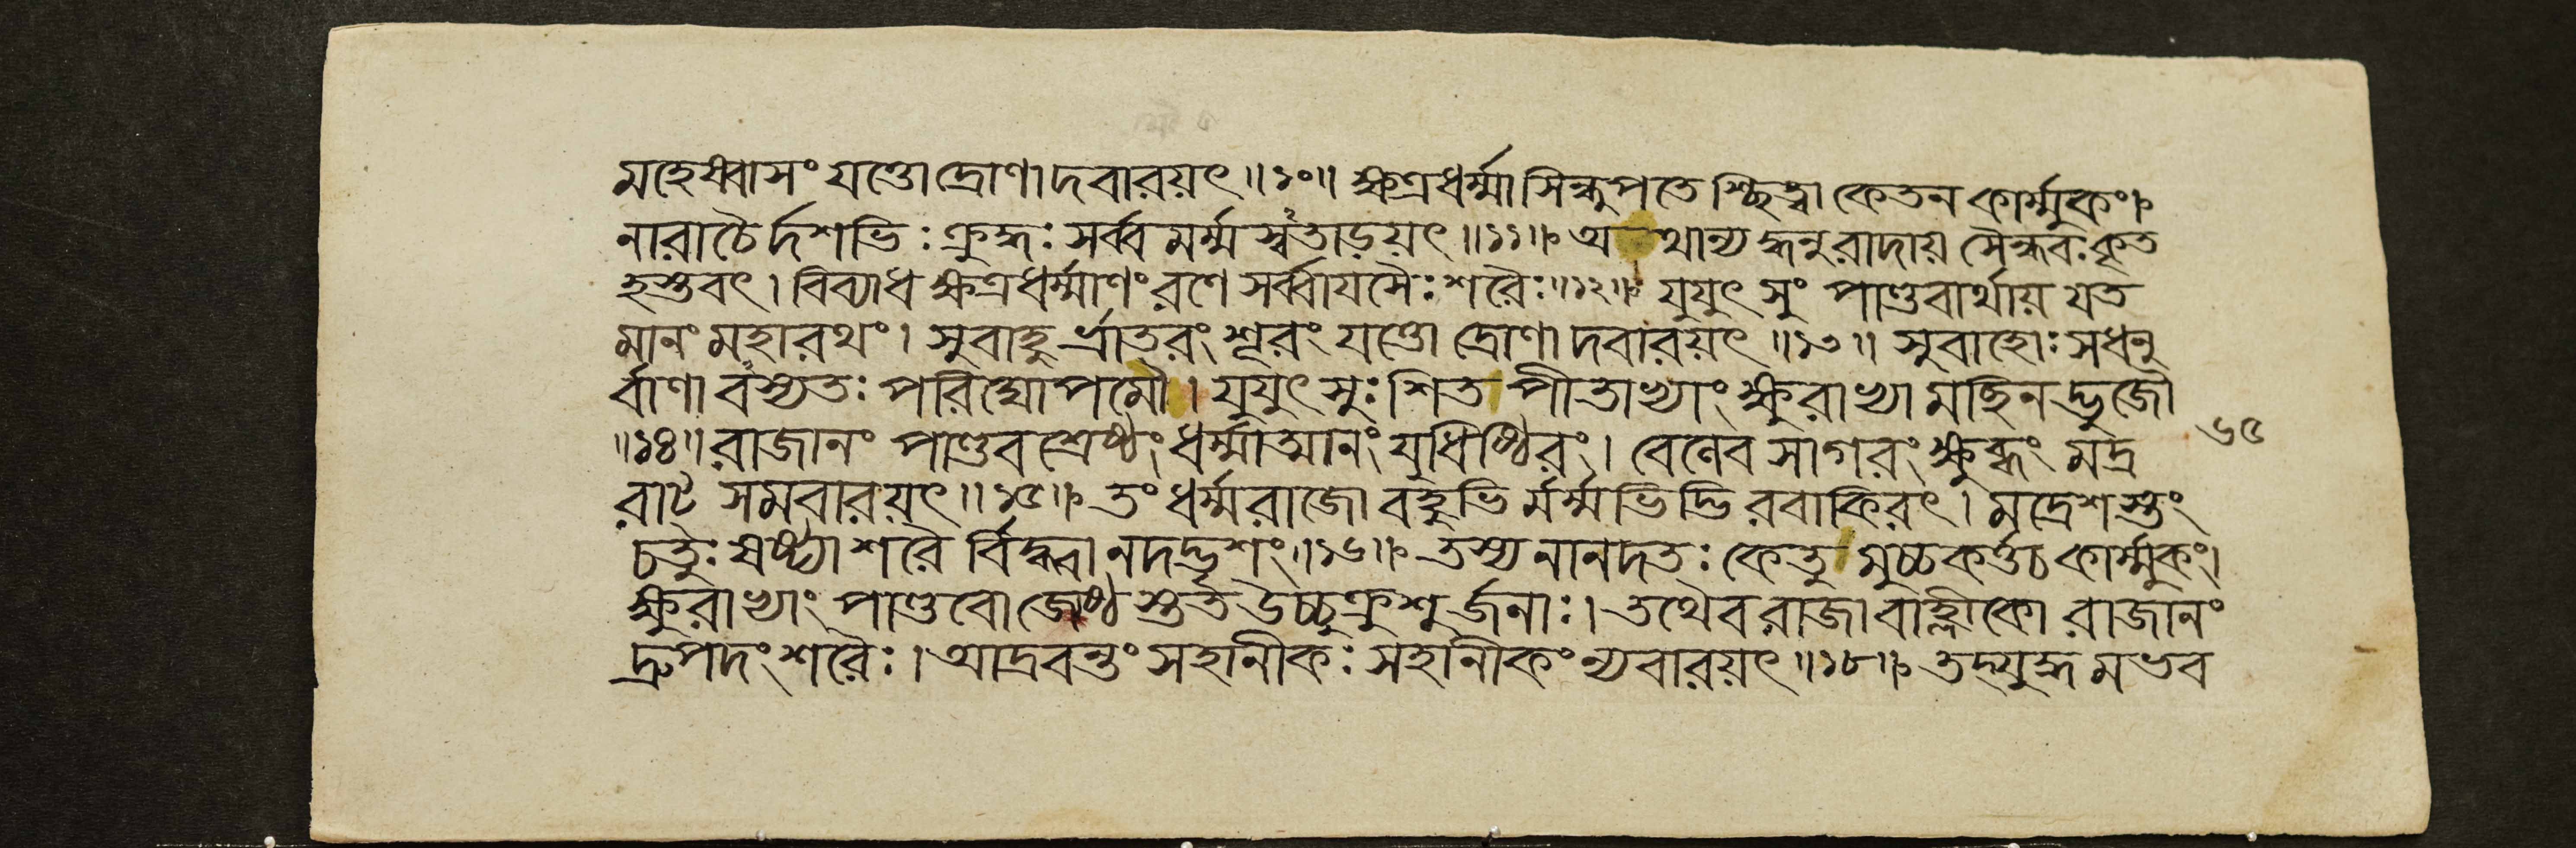 মহেষ্বাসং যত্তো দ্রোণাদবারয়ৎ ॥১০॥ ক্ষত্রধর্ম্মা সিন্ধুপতেশ্ছিত্ত্বা কেতন কার্ম্মুকং।
নারাচৈর্দশভিঃ ক্রুদ্ধঃ সর্ব্বমর্ম্মস্বতাড়য়ৎ ॥১১॥ অথান্যদ্ধনুরাদায় সৈন্ধবঃ কৃত
হস্তবৎ। বিব্যাধ ক্ষত্রধর্ম্মাণং রণে সর্ব্বায়সৈঃ শরৈঃ॥১২॥ যুযুৎসুং পাণ্ডবার্থায় যত
মানং মহারথং। সুবাহুর্ভ্রাতরং শূরং যত্তো দ্রোণাদবারয়ৎ ॥১৩॥ সুবাহোঃ সধনু
র্বাণাবস্যতঃ পরিঘোপমৌ। যুযুৎসুঃ শিতপীতাভ্যাং ক্ষুরাভ্যামচ্ছিনদ্ভুজৌ
॥১৪॥ রাজানং পাণ্ডবশ্রেষ্ঠং ধর্ম্মাত্মানং যুধিষ্ঠিরং। বেলেব সাগরং ক্ষুব্ধং মদ্র
রাট্ সমবারয়ৎ ॥১৫॥ তং ধর্ম্মরাজো বহুভির্মর্ম্মভিদ্ভিরবাকিরৎ। মদ্রেশস্তং
চতুঃষষ্ঠ্যা শরৈর্বিদ্ধ্বানদদ্ভৃশং॥১৬॥ তস্য নানদতঃ কেতুমুচ্চকর্ত্ত চ কার্ম্মুকং।
ক্ষুরাভ্যাং পাণ্ডবো জ্যেষ্ঠস্তত উচ্চুক্রুশুর্জনাঃ। তথৈব রাজা বাহ্লীকো রাজানং
দ্রুপদং শরৈঃ। আদ্রবন্তং সহানীকঃ সহানীকং ন্যবারয়ৎ ॥১৮॥ তদ্যুদ্ধমভব
৬৫